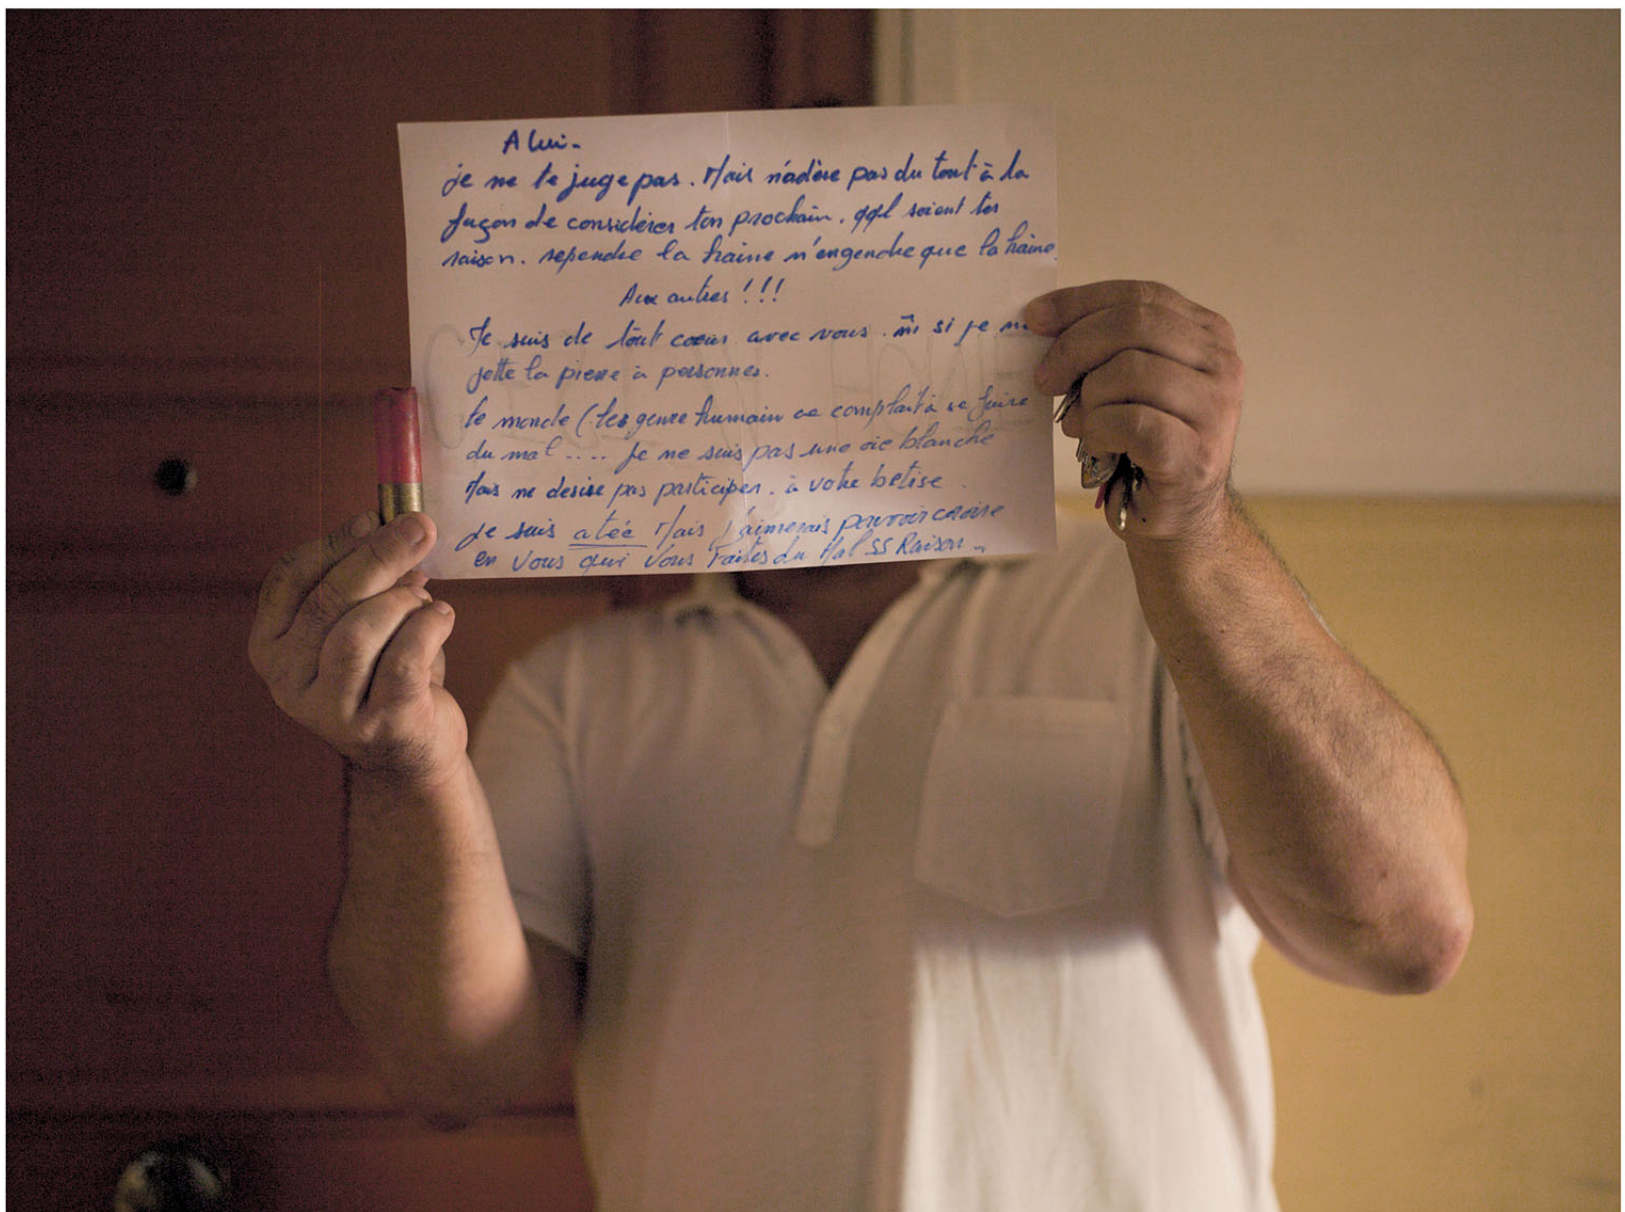 A lui -
je ne te juge pas. Mais n'adère pas du tout à la
façon de considérer ton prochain. qql soient tes
raison. rependre la haine n'engendre que la haine.
Aux autres !!!
Je suis de tout cœur avec vous. m̂ si je ne
jette la pierre à personnes.
le monde (les genre humain se complait à se faire
du mal .... je ne suis pas une oie blanche
Mais ne desire pas participer. à votre betise.
je suis atée Mais j'aimerais pouvoir croire
en vous qui vous faites du Mal SS Raison -